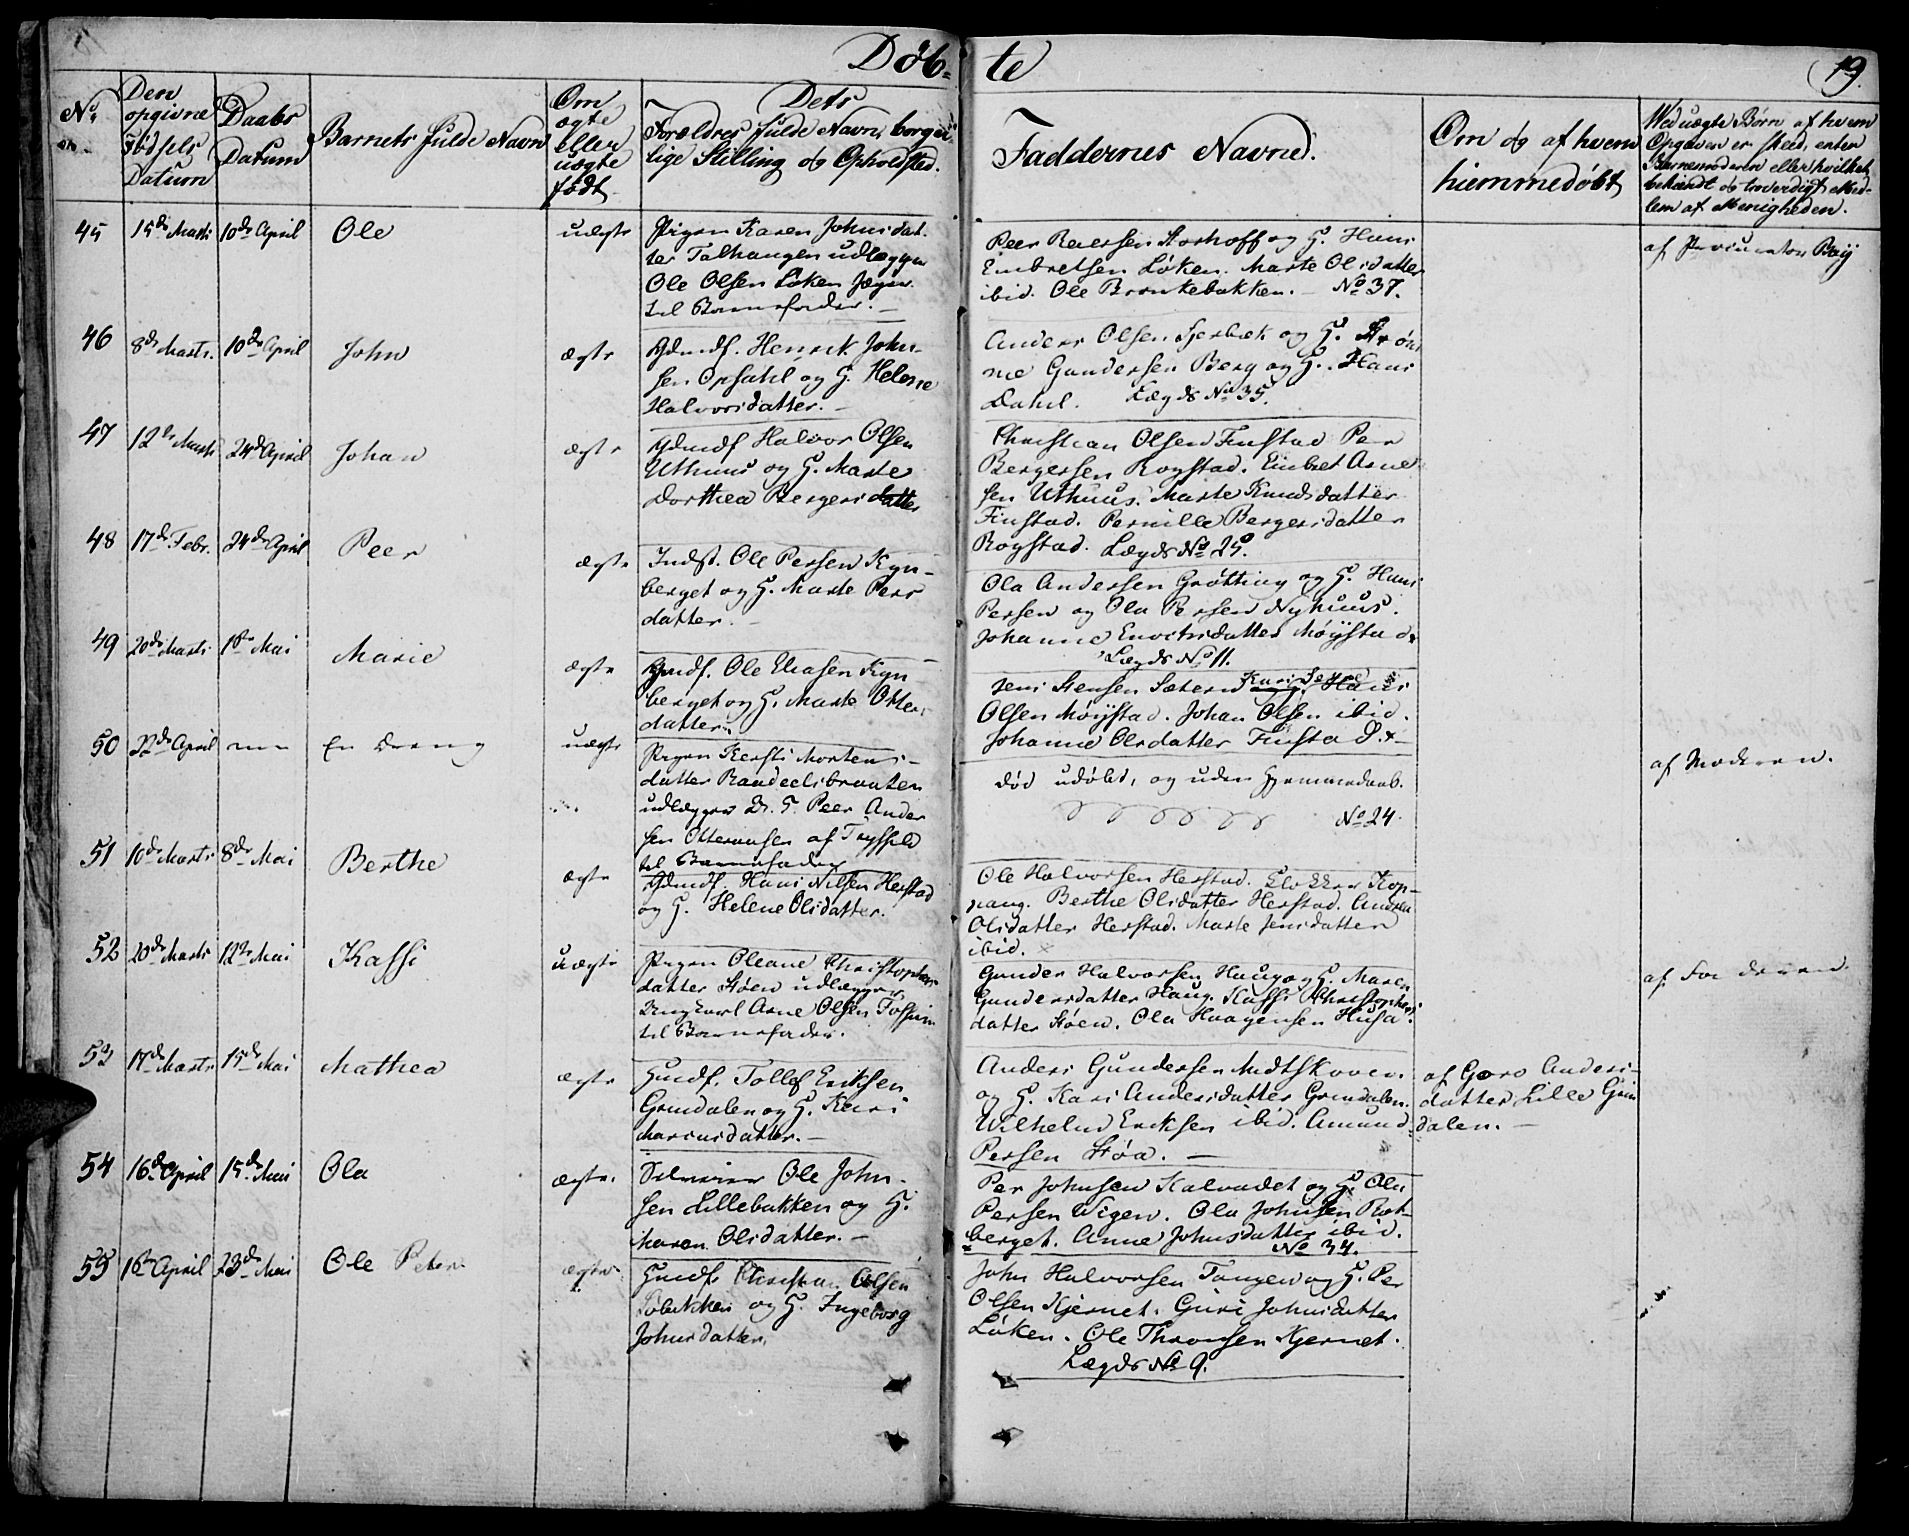 Døb=
te
19.
No.
Den
opgivne
Fødsels
Datum
Daabs
Datum
Barnets fulde Navn
Om
ægte
eller
uægte
født
Dets
Forældres fulde Navn, borger
lige Stilling og Opholdsted.
Faddernes Navne.
Om og af hvem
hiemmedøbt
Wed uægte Børn af hvem
Opgaven er skeed, enten
Barnemoderen eller hvilket
bekiendt og troværdigt Med-
lem af Menigheden.
45 15de Marts 10de April Ole uægte
Pigen Karen Johnsdat-
ter udlægger
Ole Olsen Løken
til Barnefader. —
Peer Storhoff og G. Hans
Embretsen Løken. Marte Olsdatter
ibid. Ole Brænkebakken. — No 37.
af Procurator
46 8de Marts. 10de April John ægte
Gdmdf. Henrik John-
sen Opsahl og G. Helene
Halvorsdatter. —
Anders Olsen og G.
Gundersen Berg og G. Hans
Dahl. Lægds No 35.
47 12te Marts 24de April Johan ægte
Gdmdf Halvor Olsen
Uthuus og G. Marte
Dorthea Bergersdatter
Christian Olsen Finstad Per
Bergersen Rogstad. Embret Arne
sen Uthuus. Marte Knudsdatter
Finstad. Pernille Bergersdatter
Rogstad. Lægds No 25.
48 17de Febr. 24de April Peer ægte
Indst. Ole Persen Kyn-
berget og G. Marte Pers
datter. —
Ola Andersen Grøtting og G. Hans
Persen og Ola Persen Nyhuus.
Johanne Møystad.
Lægds No 11.
49 20de Marts 1ste Mai Marie ægte
Gmdf. Ole Eliasen Kyn
berget og G. Marte Otters
datter.
Jens Stensen Sætern Kari og G. Hans
Olsen Møystad. Johan Olsen ibid.
Johanne Olsdatter Finstad.
50 22de April En Dreng uægte
Pigen Kersti Mortens-
datter
udlægger Peer Ander
sen af Trysild
til Barnefader
død udøbt, og uden Hjemmedaab.
No 24.
af Moderen.
51 10de Marts 8de Mai Berthe ægte
Gdmdf. Hans Nilsen Herstad
og G. Helene Olsdatter.
Ole Halvorsen Herstad. Klokker Kop-
pang. Berthe Olsdatter Herstad.
Olsdatter Herstad. Marte Jensdatter
ibid.
52 20de Marts 12te Mai Kassi uægte
Pigen Oleane Christophers
datter Støen udlægger
Ungkarl Arne Olsen
til Barnefader.
Gunder Halvorsen Haug og G. Maren
Gundersdatter Haug. Kassi Christophers
datter Støen. Ola Haagensen Husa.
af Faderen.
53 17de Marts 15de Mai Mathea ægte
Gmdf. Tollef Eriksen
Grindalen og G. Kari
Mariusdatter. —
Anders Gundersen Midtskoven
og G. Kari Andersdatter Grindalen.
Wilhelm Eriksen ibid. Amund
Persen Støa. —
af Goro Anders-
datter Lille Grin
dalen. —
54 16de April 15de Mai Ola ægte.
Ole John-
sen Lillebakken og G.
Maren Olsdatter. —
Per Johnsen Kalvadet og G. Ola
Persen Wigen. Ola Johnsen Rot-
berget. Anne Johnsdatter ibid.
No 34.
55 16de April 23de Mai Ole Peter ægte
Gmdf. Christian Olsen
og G. Ingeborg
Johnsdatter.
John Halvorsen Tangen og G. Per
Olsen Kjernet. Guri Johnsdatter
Løken. Ole Thronsen Kjernet.
Lægds No 9.